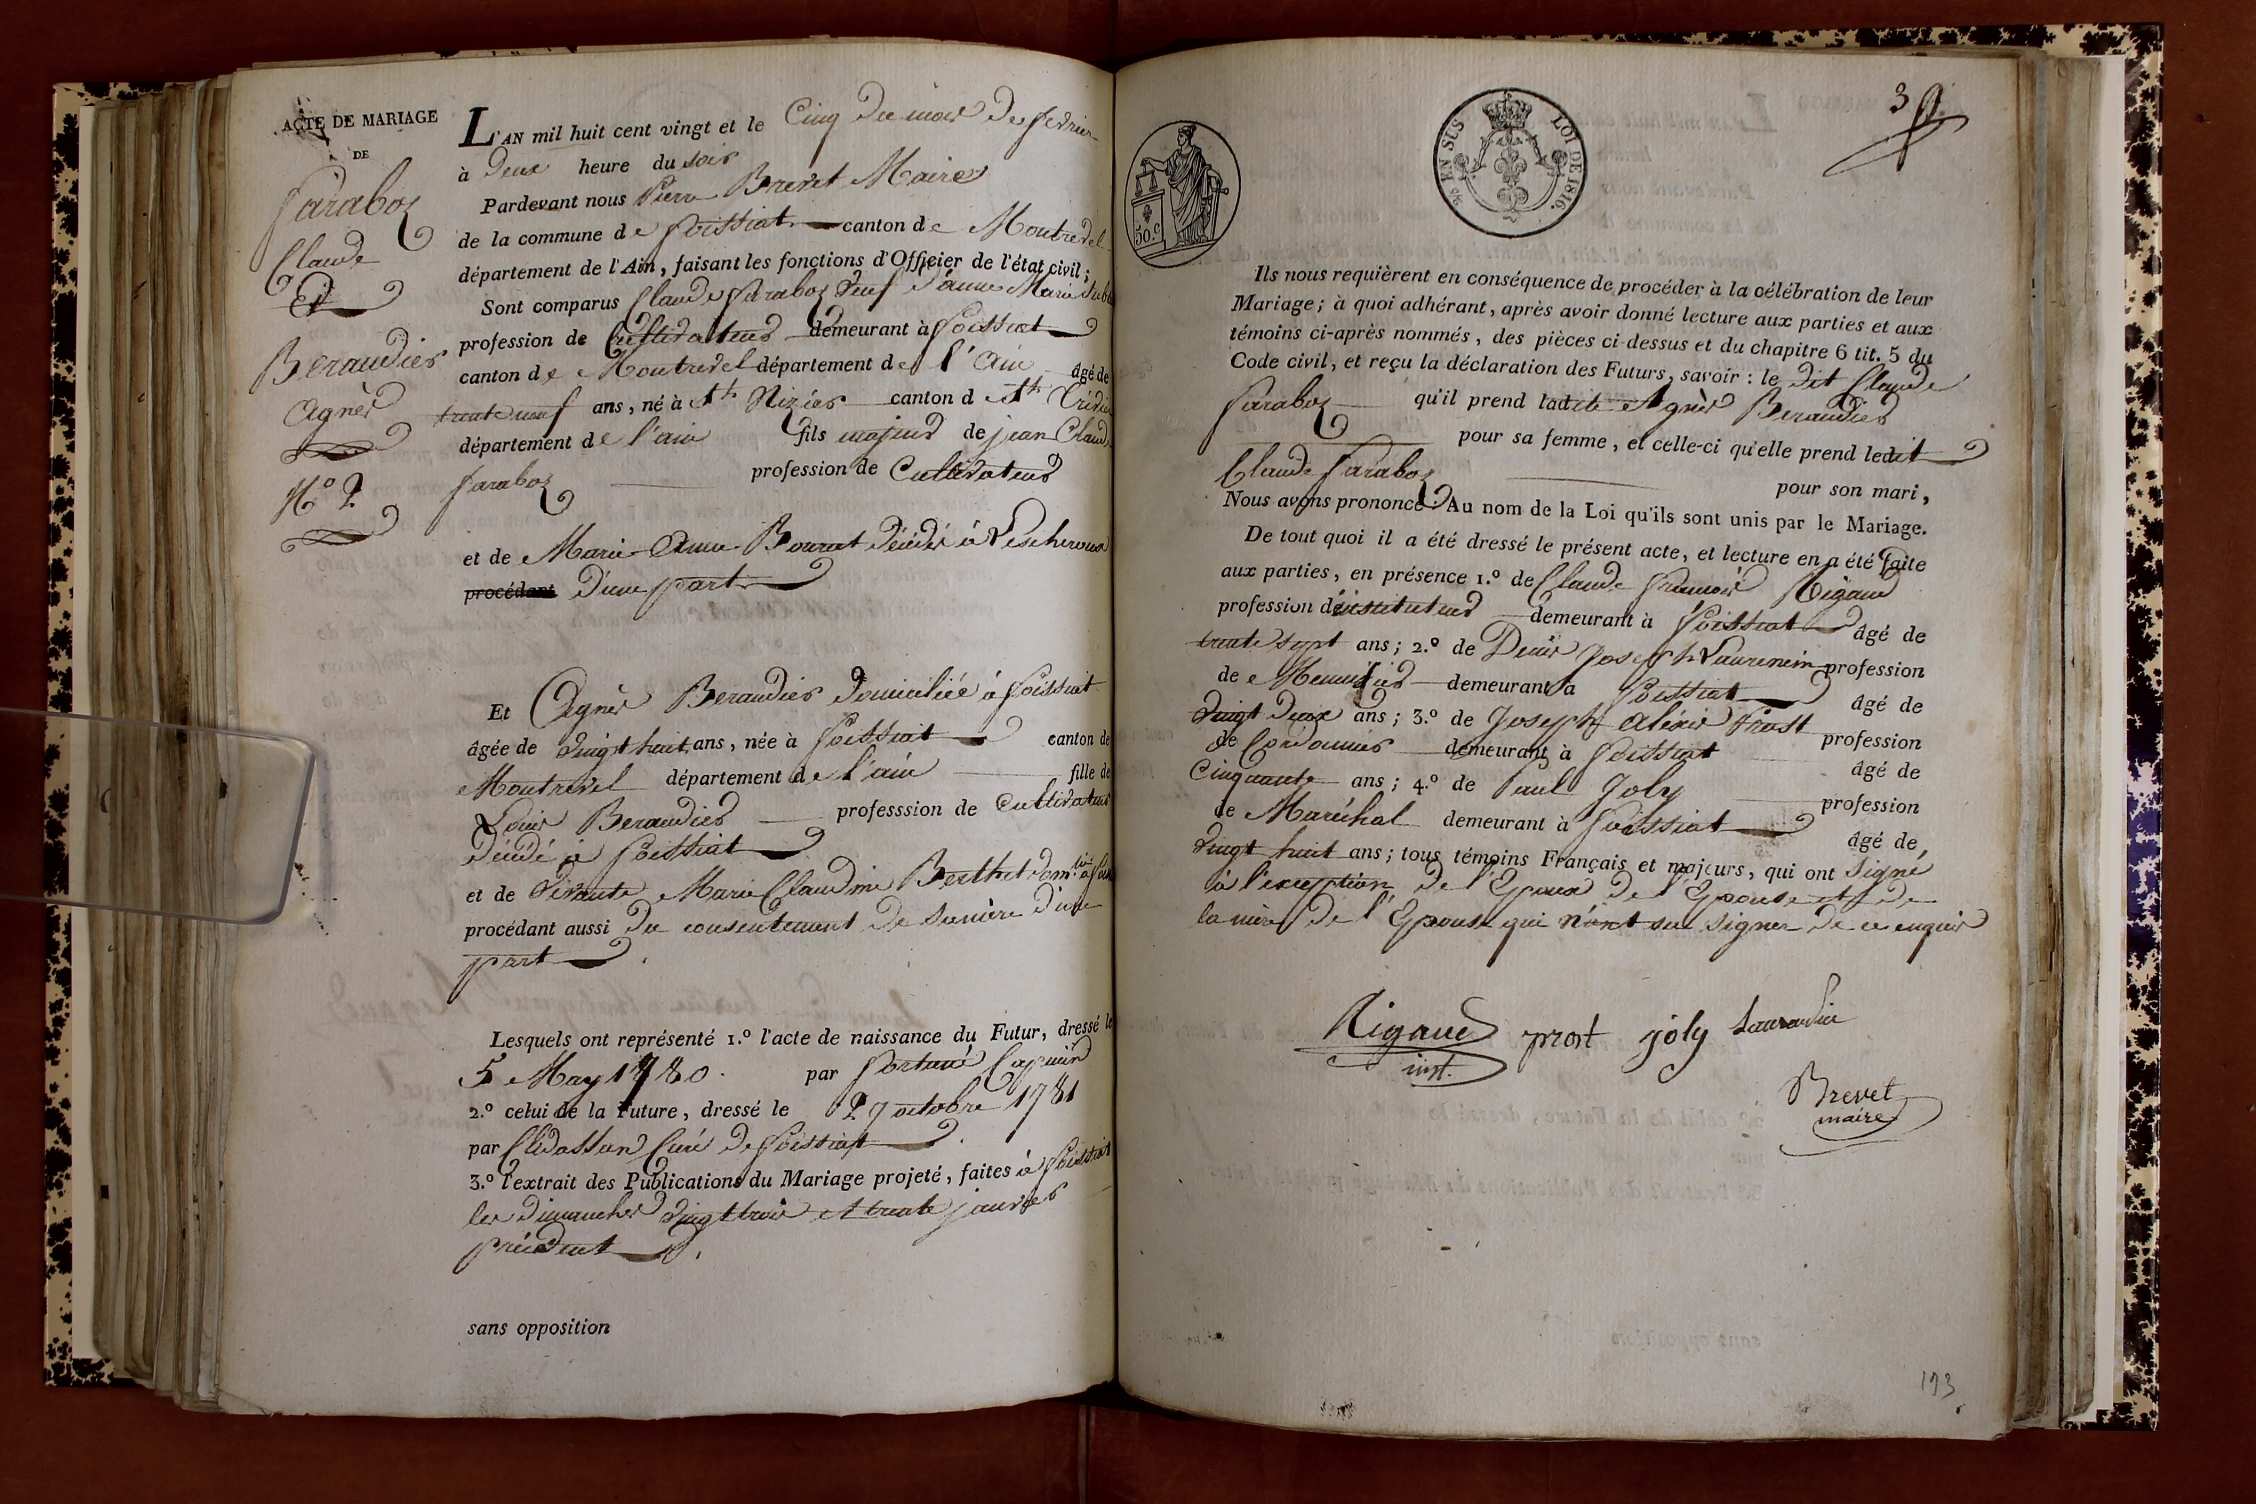 ACTE DE MARIAGE
DE
Paraboz
Claude
Et
Beraudier
Agnès
N.º 2
L'AN mil huit cent vingt et le Cinq du mois de fevrier
à Deux heure du soir
Pardevant nous Pierre Brevet Maire
de la commune de foissiat canton de Montrevel
département de l'Ain, faisant les fonctions d'Officier de l'état civil;
Sont comparus Claude Paraboz veuf d'anne Marie
profession de Cultivateur demeurant à foissiat
canton de Montrevel département de l'Ain âgé de
trente neuf ans, né à St. Nizier canton d St. Trivier
département de l'ain fils majeur de jean Claude
Paraboz profession de Cultivateur
et de Marie Anne Bourat décédés à Lescheroux
procédant D'une part
Et Agnès Beraudier domiciliée à foissiat
âgée de vingt huit ans, née à foissiat canton de
Montrevel département de l'ain fille de
Louis Beraudier professsion de Cultivateur
décédé à foissiat
et de vivante Marie Claudine Berthet dom.
procédant aussi du consentement de sa mère d'une
part
Lesquels ont représenté 1.º l'acte de naissance du Futur, dressé le
5 May 1780. par
2.º celui de la Future, dressé le 27 octobre 1781
par Curé de foissiat
3.º l'extrait des Publications du Mariage projeté, faites à foissiat
les dimanches vingt trois et trente janvier
précédent
sans opposition
3
50.C
EN SUS LOI DE 1816.
Ils nous requièrent en conséquence de procéder à la célébration de leur
Mariage; à quoi adhérant, après avoir donné lecture aux parties et aux
témoins ci-après nommés, des pièces ci-dessus et du chapitre 6 tit. 5 du
Code civil, et reçu la déclaration des Futurs, savoir: le dit Claude
Paraboz qu'il prend ladite Agnès Beraudier
pour sa femme, et celle-ci qu'elle prend ledit
Claude Paraboz pour son mari,
Nous avons prononcé: Au nom de la Loi qu'ils sont unis par le Mariage.
De tout quoi il a été dressé le présent acte, et lecture en a été faite
aux parties, en présence 1.º de Claude François Rigaud
profession d'instituteur demeurant à foissiat âgé de
trente sept ans; 2.º de Denis Joseph Laurencin profession
de Menuisier demeurant à foissiat âgé de
vingt deux ans; 3.º de Joseph Alexis Prost profession
de Cordonnier demeurant à foissiat âgé de
Cinquante ans; 4.º de Paul Joly profession
de Maréchal demeurant à foissiat âgé de
vingt huit ans; tous témoins Français et majeurs, qui ont signé
à l'exception de l'Epoux de l'Epouse et de
la mère de l'Epouse qui n'ont su signer de ce enquis
Rigaud prost joly
inst.
Brevet
maire
193